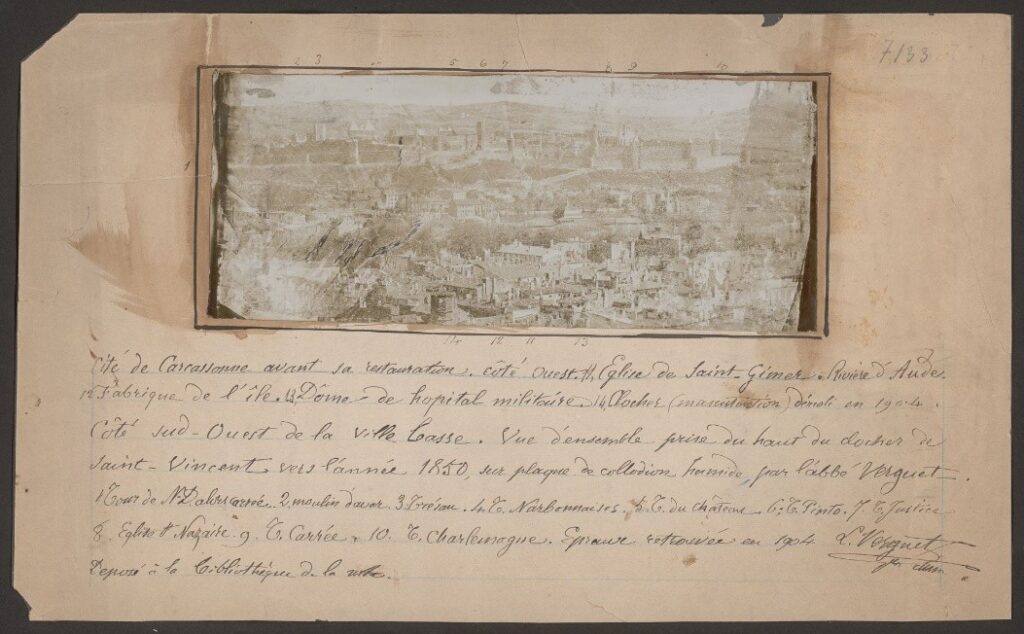 7133
2 3 5 6 7 8 9 10
1
14 12 11 13
Cité de Carcassonne avant sa restauration. côté ouest. 11, Eglise de Saint-Gimer. Rivière d'Aude.
12 Fabrique de l'île. 13 Dôme de hopital militaire. 14 Clocher démoli en 1904.
Côté sud-Ouest de la Ville basse. Vue d'ensemble prise du haut du clocher de
Saint-Vincent vers l'année 1850, sur plaque de collodion humide, par l'abbé Verguet.
1 Tour de 2. moulin 3. Trésau. 4. T. Narbonnaises. 5. T. du château. 6. T. Pinte. 7. T. Justice
8. Eglise St Nazaire. 9. T. Carrée. 10. T. Charlemagne. Epreuve retrouvée en 1904 L. Verguet
Déposé à la bibliothèque de la ville.